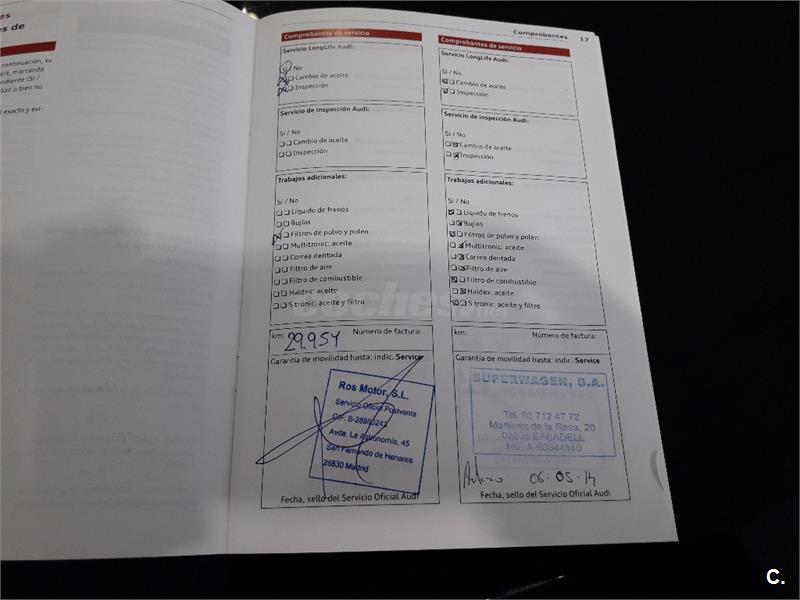 es
s de
continuación, su
ará, marcando
ndiente (Sí /
lizó o bien no
l exacto y exi-
Comprobantes 17
Comprobantes de servicio
Servicio LongLife Audi:
Sí / No
Cambio de aceite
Inspección
Servicio de inspección Audi:
Sí / No
Cambio de aceite
Inspección
Trabajos adicionales:
Sí / No
Líquido de frenos
Bujías
Filtros de polvo y polen
Multitronic: aceite
Correa dentada
Filtro de aire
Filtro de combustible
Haldex: aceite
S tronic: aceite y filtro
km: 29.954 Número de factura:
Garantía de movilidad hasta: indic. Service
Ros Motor, S.L.
Servicio Oficial Postventa
CIF: B-28880247
Avda. La Astronomía, 45
San Fernando de Henares
28830 Madrid
Fecha, sello del Servicio Oficial Audi
Comprobantes de servicio
Servicio LongLife Audi:
Sí / No
Cambio de aceite
Inspección
Servicio de inspección Audi:
Sí / No
Cambio de aceite
Inspección
Trabajos adicionales:
Sí / No
Líquido de frenos
Bujías
Filtros de polvo y polen
Multitronic: aceite
Correa dentada
Filtro de aire
Filtro de combustible
Haldex: aceite
S tronic: aceite y filtro
km: Número de factura:
Garantía de movilidad hasta: indic. Service
SUPERWAGEN, S.A.
Tel. 93 712 47 72
Martínez de la Rosa, 20
08205 SABADELL
NIF. A-60344140
06-05-14
Fecha, sello del Servicio Oficial Audi
coches.net
C.